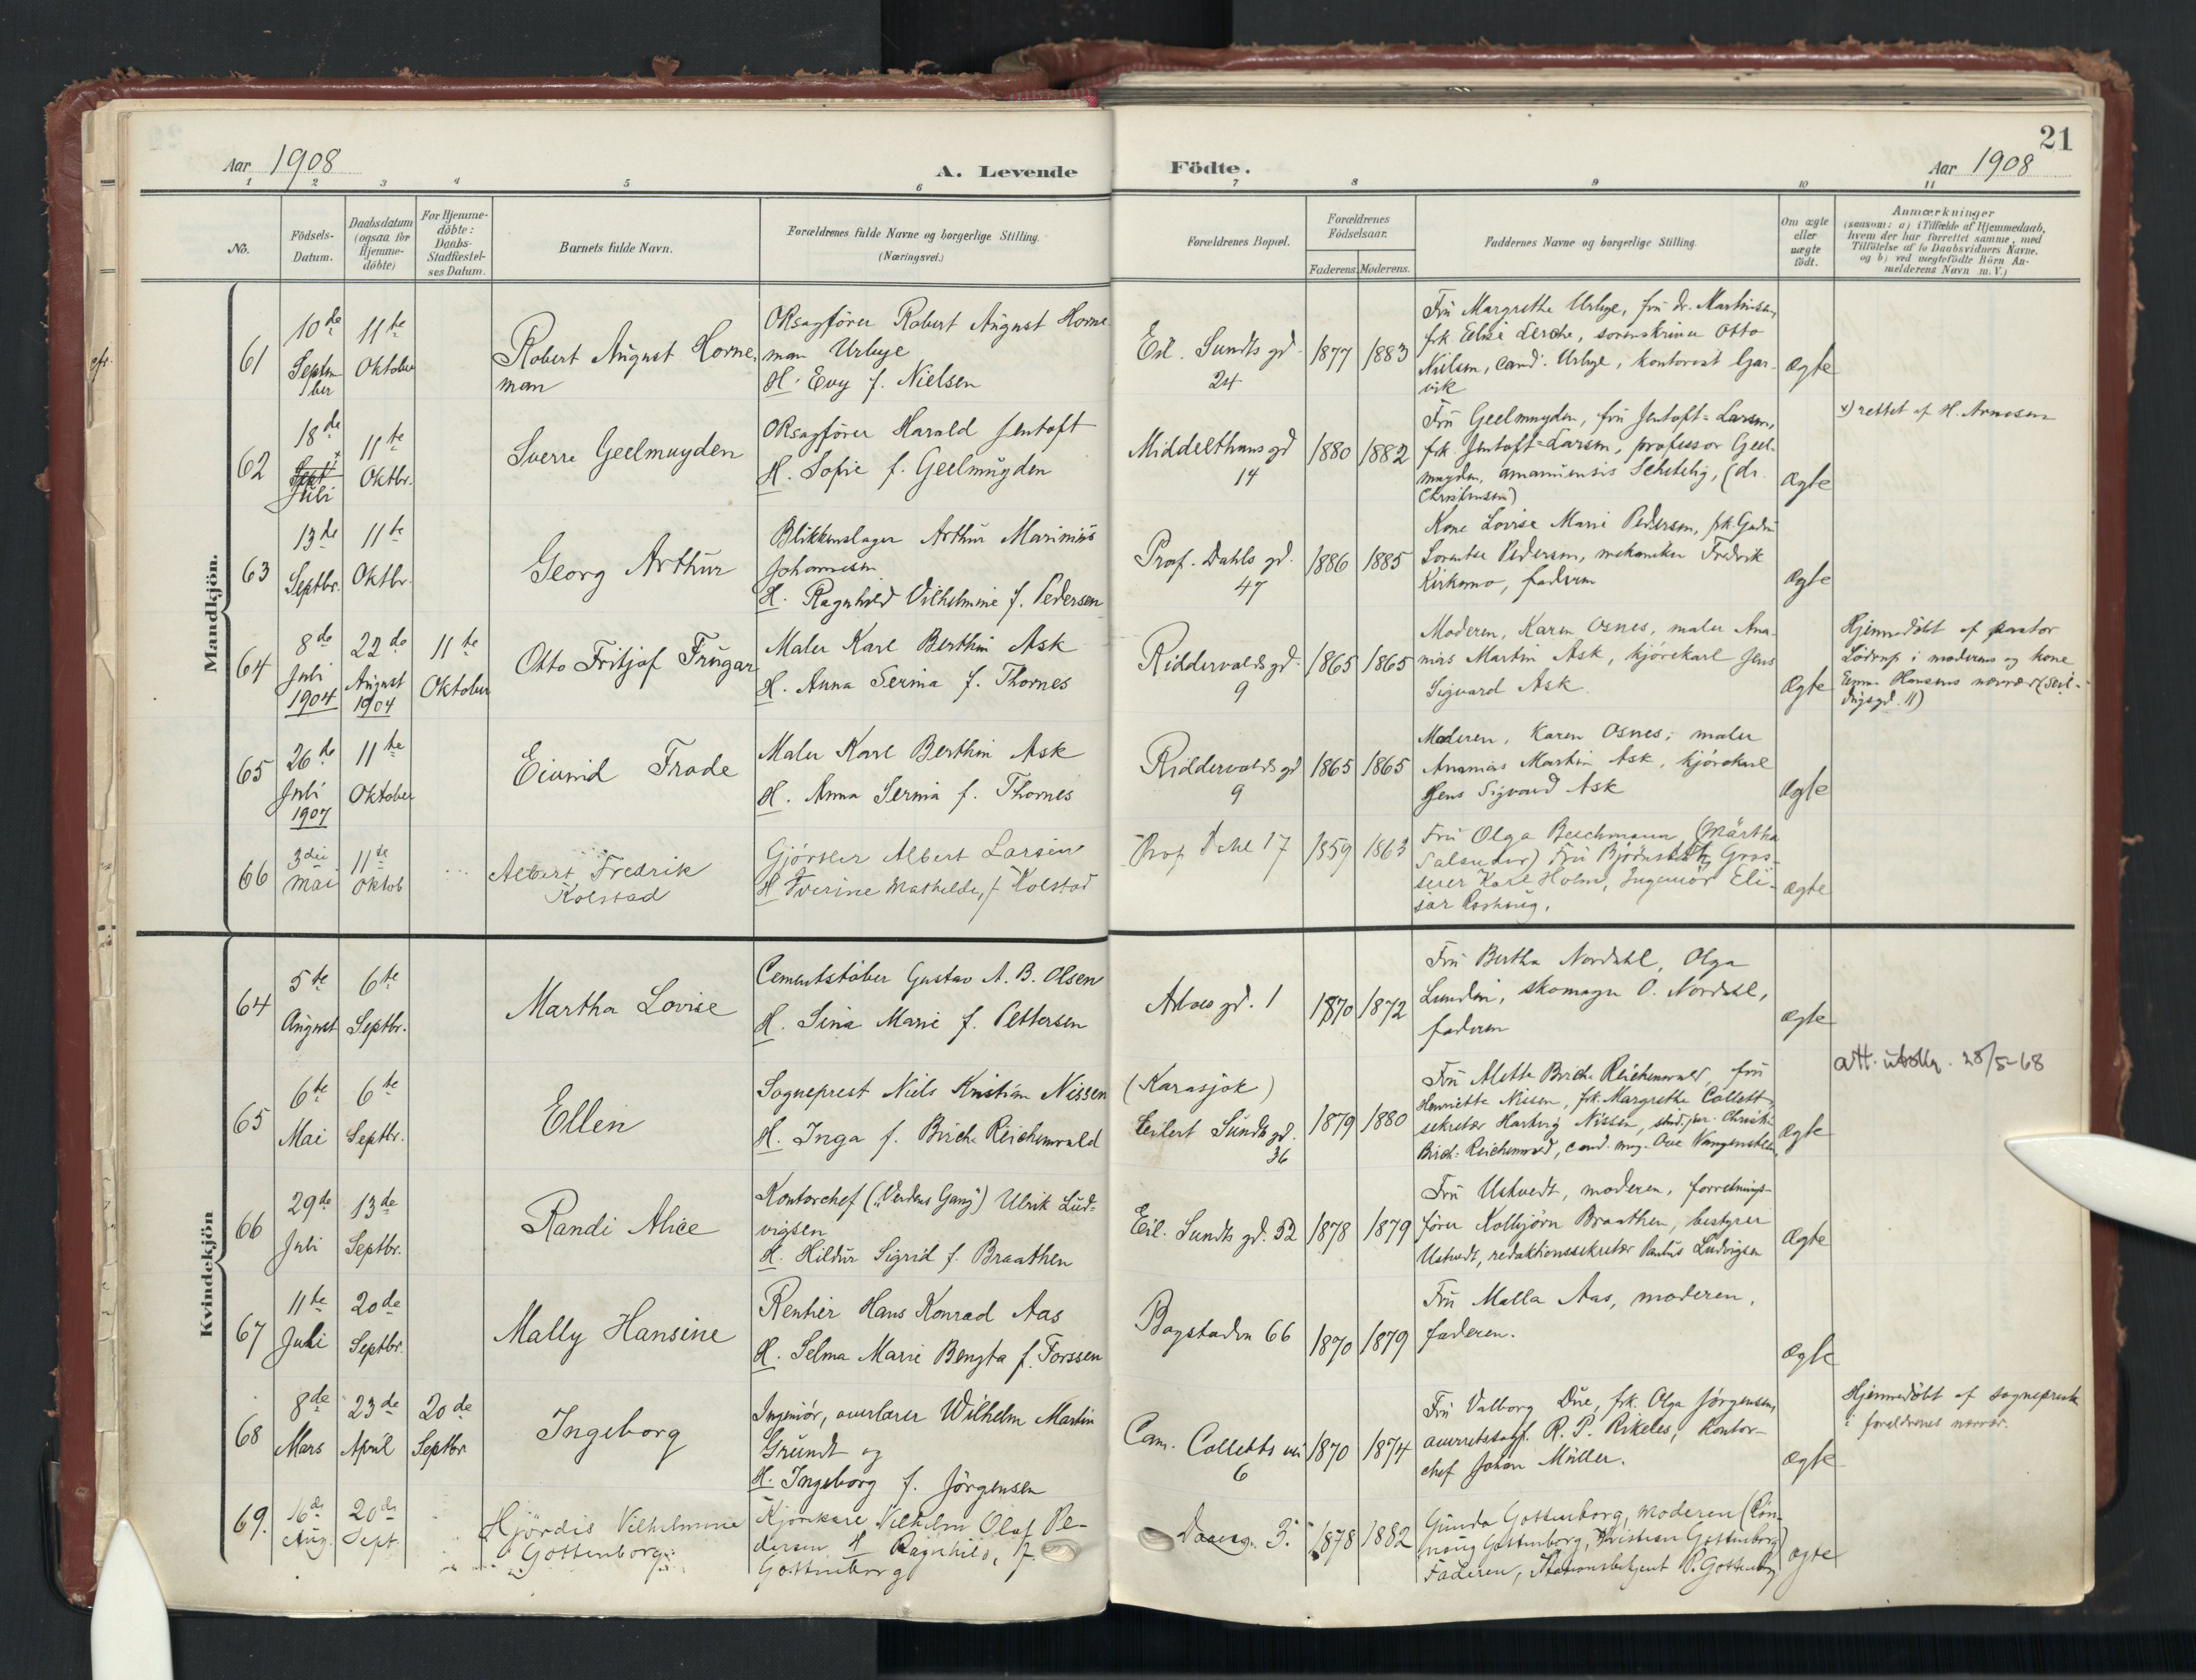 21
Aar 1908
A. Levende Födte.
Aar 1908
1 2 3 4 5 6 7 8 9 10 11
No.
Födsels-
Datum.
Daabsdatum
(ogsaa for
Hjemme-
döbte)
For Hjemme-
döbte:
Daabs-
Stadfæstel-
ses Datum.
Barnets fulde Navn.
Forældrenes fulde Navne og borgerlige Stilling.
(Næringsvei.)
Forældrenes Bopæl.
Forældrenes
Födselsaar.
Faderens. Moderens.
Faddernes Navne og borgerlige Stilling.
Om ægte
eller
uægte
födt.
Anmærkninger
(saasom: a) i Tilfælde af Hjemmedaab,
hvem der har forrettet samme, med
Tilföielse af to Daabsvidners Navne.
og b) ved uægtefödte Börn An-
melderens Navn m. V.)
Mandkjön.
61
10de
Septem
ber
11te
Oktober
Robert August Horne,
man
ORsagfører Robert August Horne
man Urbye
H. Evy f. Nielsen
Eil. Sundts gd.
24
1877
1883
Fru Margrethe Urbye, fru dr. Martinsen,
frk. Elise Lerche, sorenskriver Otto
Nielsen, cand. Urbye, kontorist Gar-
vik
ægte
62
18de
Sept x
Juli
11te
Oktbr.
Sverre Geelmuyden
ORsagfører Harald Jentoft
H. Sofie f. Geelmuyden
Middelthuns gd
14
1880
1882
Fru Geelmuyden, fru Jentoft-Larsen,
frk. Jentoft-Larsen, professor Geel-
muyden, amanuensis Schetelig, (dr.
Christensen)
ægte
x) rettet af H. Arnesen
63
13de
Septbr.
11te
Oktbr.
Georg Arthur
Blikkenslager Arthur Marinius
Johannesen
H. Ragnhild Vilhelmine f. Pedersen
Prof. Dahls gd.
47
1886
1885
Kone Lovise Marie Pedersen, frk. Gudr
Lorentse Pedersen, mekaniker Fredrik
Kirkemo, faderen
ægte
64
8de
Juli
1904
22de
August
1904
11te
Oktober
Otto Fritjof Frugar
Maler Karl Berthin Ask
H. Anna Serina f. Thornes
Riddervolds gd.
9
1865
1865
Moderen, Karen Osnes, maler Ana-
nias Martin Ask, kjørekarl Jens
Sigvard Ask.
ægte
Hjemmedøbt af pastor
Lødrup i moderens og kone
Emma Hansens nærvær (Seil-
dugsgd. 11)
65
26de
Juli
1907
11te
Oktober
Eivind Frode
Maler Karl Berthin Ask
H. Anna Serina f. Thornes
Riddervolds gd
9
1865
1865
Moderen, Karen Osnes, maler
Ananias Martin Ask, kjørekarl
Jens Sigvard Ask
ægte
66
3die
Mai
11te
Oktob
Albert Fredrik
Kolstad
Gjørtler Albert Larsen
H Iverine Mathilde, f. Kolstad
Prof Dahl 17
1859
1863
Fru Olga Beichmann (Märtha
Salsuder) Fru Bjørnstad, Gros-
serer Karl Holm, Ingeniør Eli-
sar
ægte
Kvindekjön
64
5te
August
6te
Septbr.
Martha Lovise
Cementstøber Gustav A. B. Olsen
H. Sina Marie f. Pettersen
gd. 1
1870
1872
Fru Bertha Nordahl, Olga
Lundin, skomager O. Nordahl,
faderen
ægte
65
6te
Mai
6te
Septbr.
Ellen
Sogneprest Niels Kristian Nissen
H. Inga f. Birch-Reichenwald
(Karasjok)
Eilert Sundts gd.
36
1879
1880
Fru Alette Birch-Reichenwald, fru
Henriette Nissen, frk. Margrethe Collett,
sekretær Hartvig Nissen, stud. jur. Christian
Birch-Reichenwald, cand. mag. Ove Wangensteen
ægte
att. utst. 28/5-68
66
29de
Juli
13de
Septbr.
Randi Alice
Kontorchef ("Verdens Gang") Ulrik Lud-
vigsen
H. Hildur Sigrid f. Braathen
Eil. Sundts gd. 52
1878
1879
Fru Ustvedt, moderen, forretnings-
fører Kolbjørn Braathen, bestyrer
Ustvedt, redaktionssekretær Paulus Ludvigsen
ægte
67
11te
Juli
20de
Septbr.
Mally Hansine
Rentier Hans Konrad Aas
H. Selma Marie Bengta f. Forssen
Bogstadvn 66
1870
1879
Fru Malla Aas, moderen,
faderen.
ægte
68
8de
Mars
23de
April
20de
Septbr.
Ingeborg
Ingeniør, overlærer Wilhelm Martin
Grundt og
H. Ingeborg f. Jørgensen
Cam. Colletts vei
6
1870
1874
Fru Valborg Due, frk. Olga Jørgensen,
overretssagf. R. P. Rikeles, kontor-
chef Johan Müller.
ægte
Hjemmedøbt af sogneprest
i foreldrenes nærvær.
69.
16de
Aug.
20de
Sept
Hjördis Vilhelmine
Gottenborg.
Kjørekarl Vilhelm Olaf Pe-
dersen H Ragnhild, f.
Gottenborg
Daasg. 3.
1878
1882
Gunda Gottenborg, Moderen (Røn-
naug Gottenborg, Kristian Gottenborg)
Faderen, Stationsbetjent P. Gottenborg
ægte